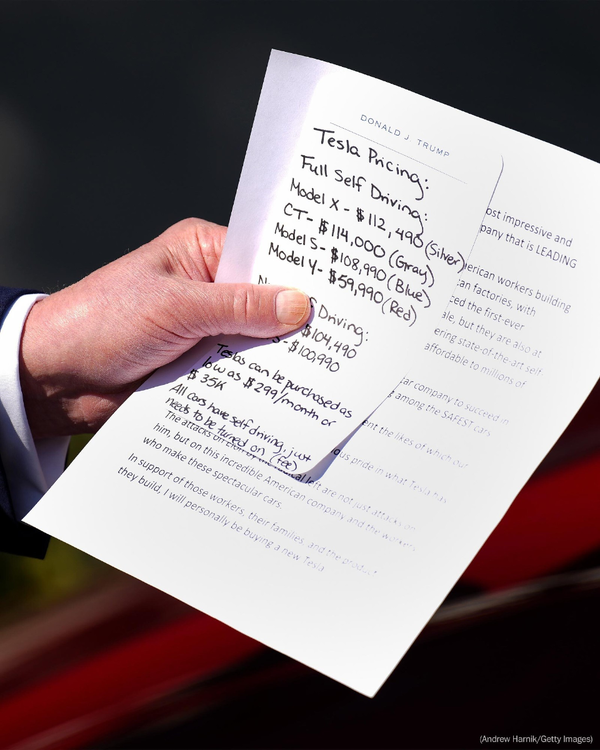 DONALD J. TRUMP
Tesla Pricing:
Full Self Driving:
Model X - $112,490 (Silver)
CT- $114,000 (Gray)
Model S - $108,990 (Blue)
Model Y- $59,990 (Red)
Driving:
$104,490
- $100,990
Teslas can be purchased as
low as $299/month or
$35K
All cars have self driving, just
needs to be turned on (fee)
ost impressive and
pany that is LEADING
erican workers building
an factories, with
ced the first-ever
ale, but they are also at
ering state-of-the-art self
affordable to millions of
ar company to succeed in
among the SAFEST cars
ent the likes of which our
ous pride in what Tesla has
The attacks on left are not just attacks on
him, but on this incredible American company and the workers
who make these spectacular cars.
In support of those workers, their families, and the product
they build, I will personally be buying a new Tesla
(Andrew Harnik/Getty Images)